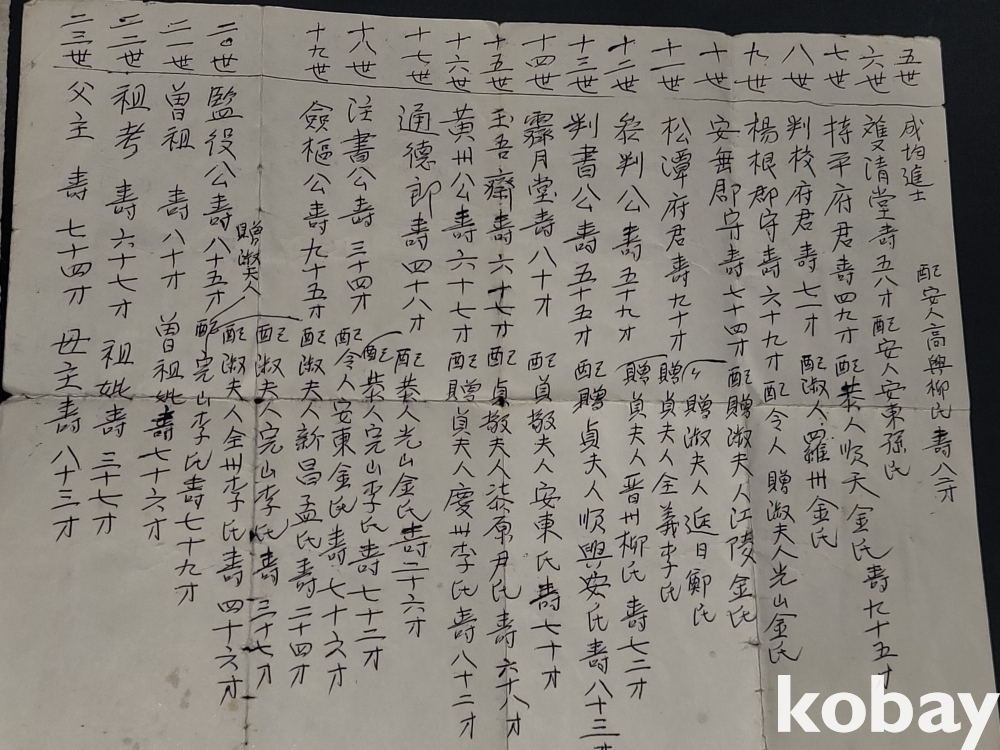 五世 成均進士 配安人高興柳氏 壽八二才
六世 雙清堂壽五八才 配安人安東孫氏
七世 持平府君壽四九才 配恭人順天金氏壽九十五才
八世 判校府君壽七一才 配淑人羅州金氏
九世 楊根郡守壽六十九才 配令人 贈淑夫人光山金氏
十世 安無郡守壽七十四才 配贈淑夫人江陵金氏
十一世 松潭府君壽九十才 配贈淑夫人延日鄭氏
〃贈貞夫人全義李氏
十二世 參判公壽五十九才 贈貞夫人晋州柳氏 壽七二才
十三世 判書公壽五十五才 配贈貞夫人順興安氏壽八十三才
十四世 霽月堂壽八十才 配貞敬夫人安東氏壽七十才
十五世 玉吾齋壽六十七才 配貞敬夫人漆原尹氏壽六十八才
十六世 黃州公壽六十七才 配贈貞夫人慶州李氏壽八十二才
十七世 通德郎壽四十八才 配恭人光山金氏壽二十六才
配恭人完山李氏壽七十二才
十八世 注書公壽三十四才 配令人安東金氏壽七十六才
十九世 僉樞公壽九十五才 配淑夫人新昌孟氏壽二十四才
配淑夫人完山李氏壽三十七才
配淑夫人全州李氏壽四十六才
二〇世 監役公壽八十五才 贈淑夫人 配完山李氏壽七十九才
二一世 曽祖 壽八十才 曽祖妣壽七十六才
二二世 祖考 壽六十七才 祖妣壽三十七才
二三世 父主 壽七十四才 母主壽八十三才
kobay